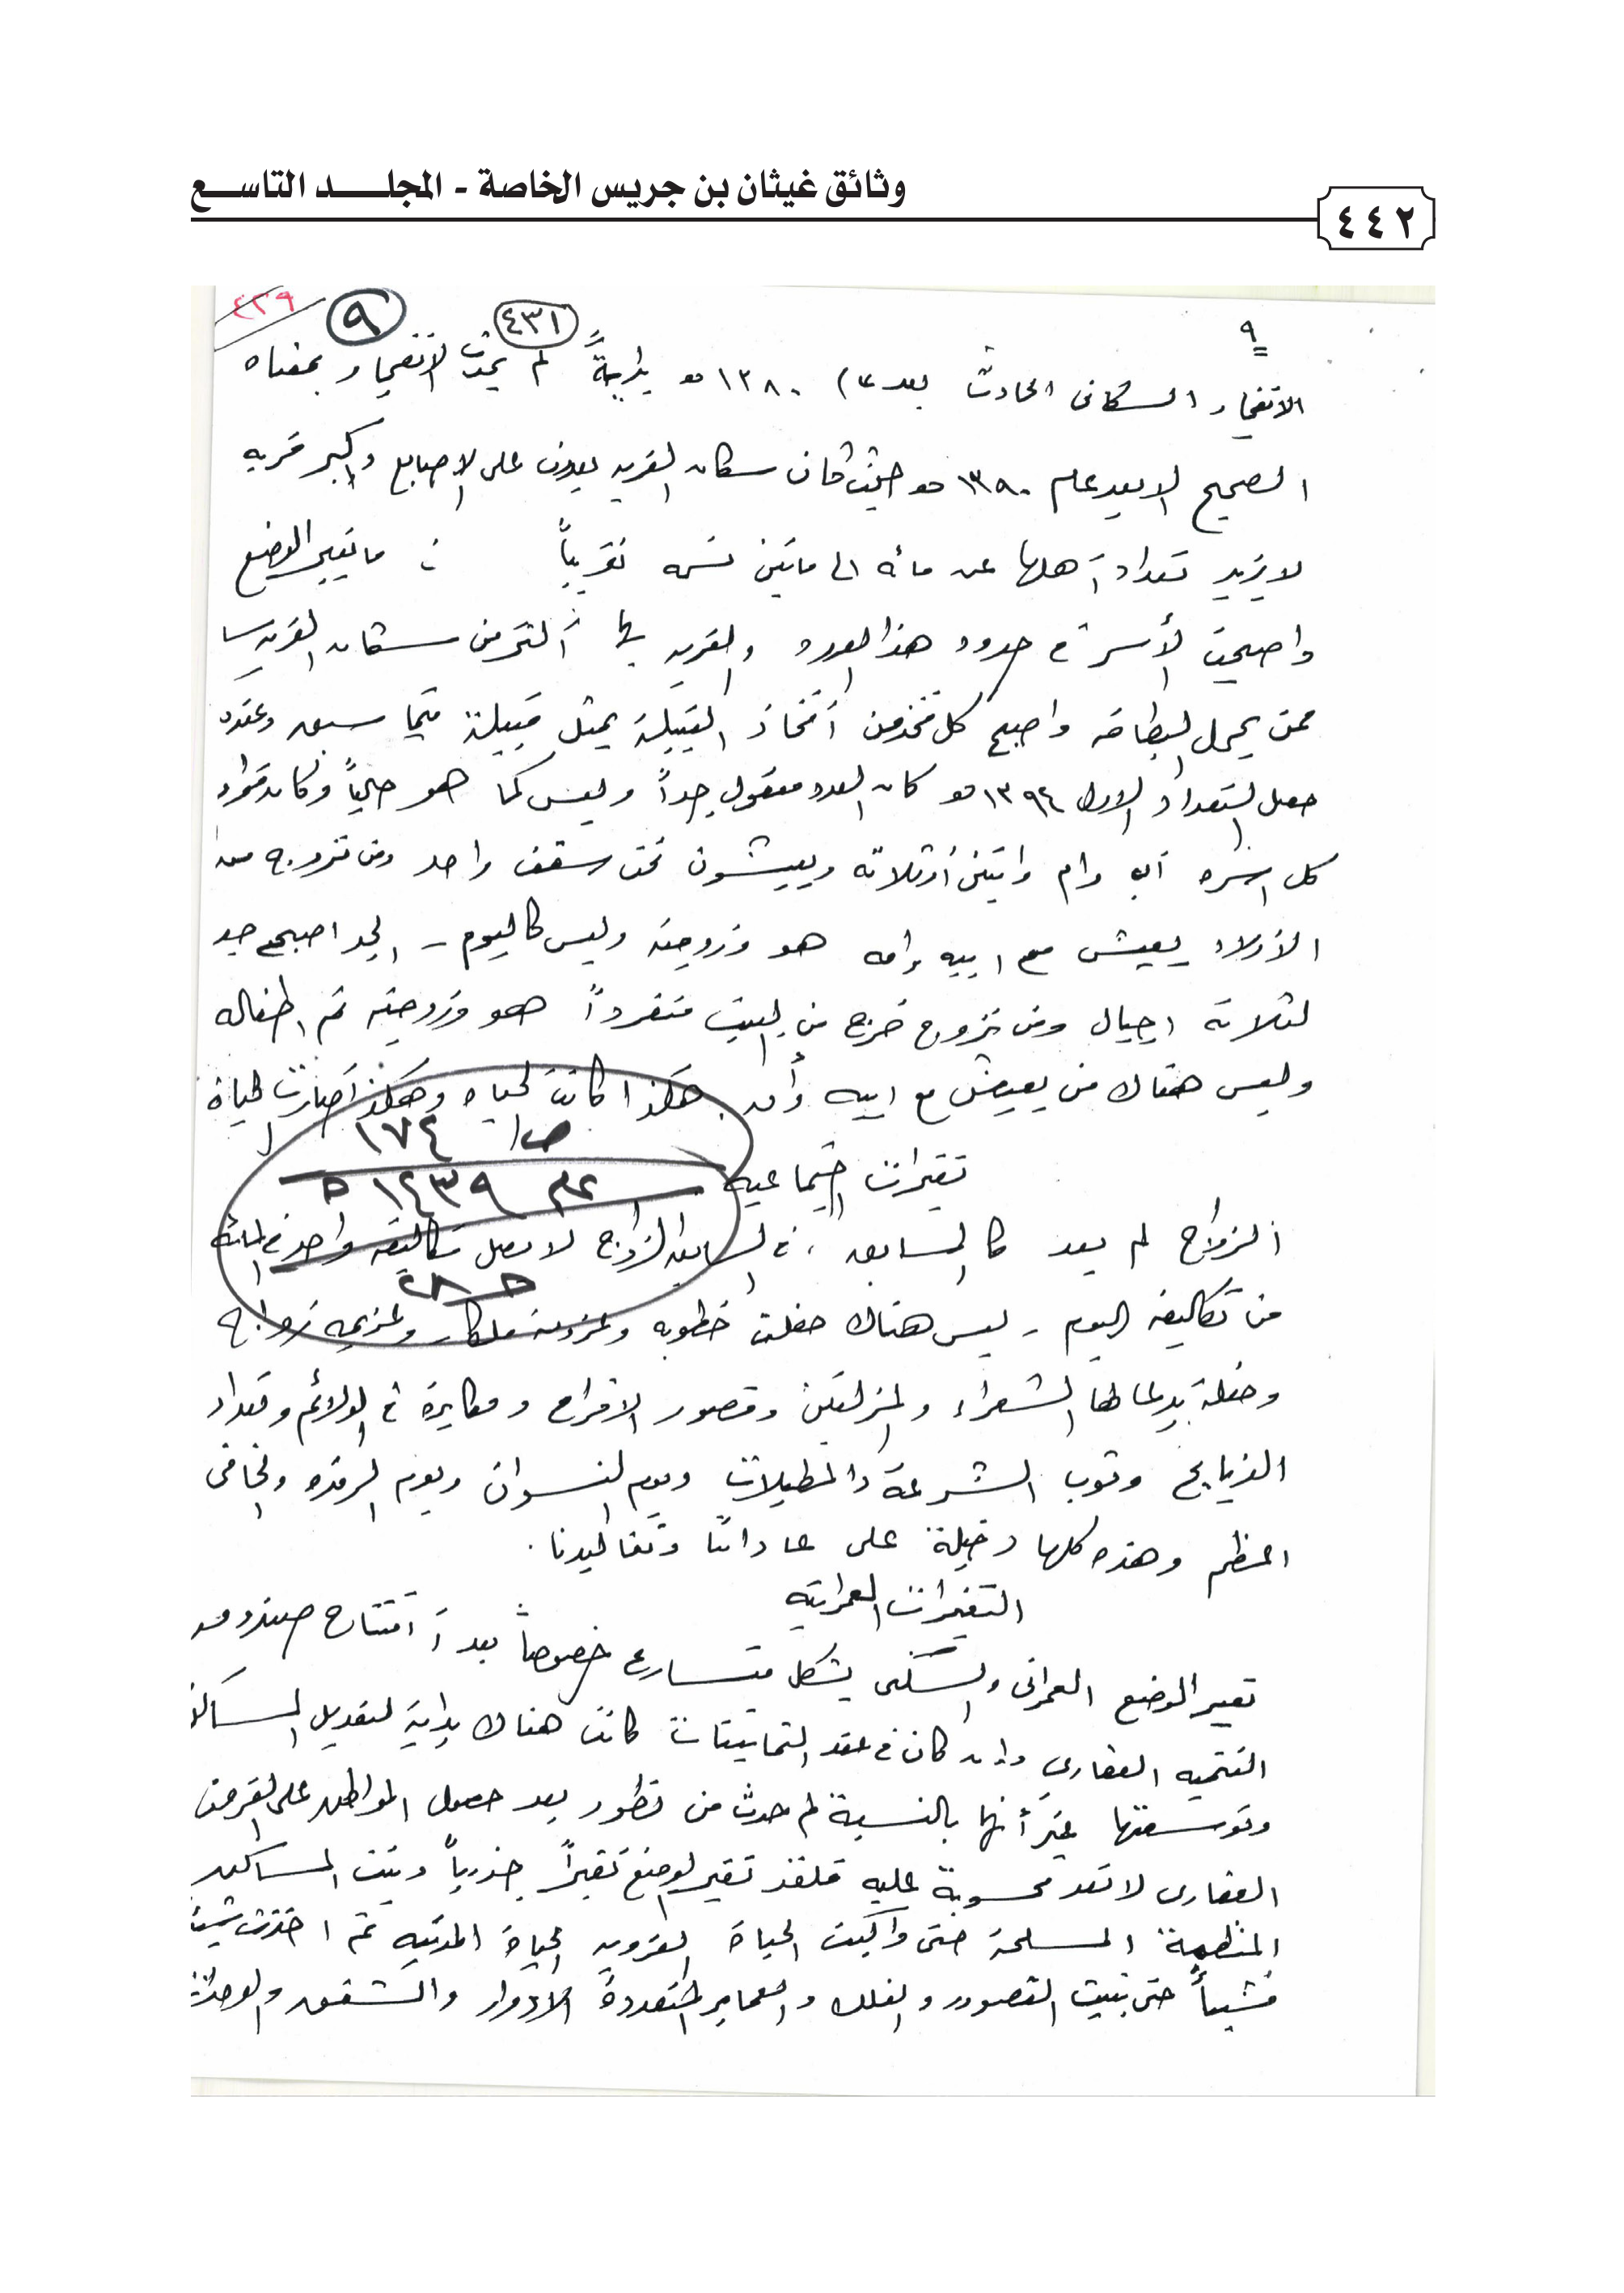 وثائق غيثان بن جريس الخاصة - المجلد التاسع
٤٤٢
٤٣٩
٩
٤٣١
٩
الانفجار السكاني الحادث بعد عام ١٣٨٠هـ بداية لم يحدث الانفجار بمعناه
الصحيح الا بعد عام ١٣٩٠هـ حيث كان سكان القريه يعدون على الاصابع واكبر قريه
لا يزيد تعداد أهلها عن مائه الى مائتين نسمه تقريباً ما تغير الوضع
واصبحت الأسرة في حدود هذا العدد والقريه بها أكثر من سكان القريه
ممن يحمل البطاقه واصبح كل فخذ من أفخاذ القبيلة يمثل قبيلة فيما سبق وعندما
حصل التعداد الاول ١٣٩٤هـ كان العدد معقول جداً وليس كما هو حالياً وكان تعداد
كل اسره أب وام واثنين أو ثلاثه ويعيشون تحت سقف واحد ومن تزوج من
الأولاد يعيش مع ابيه وامه هو وزوجته وليس كاليوم - الجد اصبح جد
لثلاثة اجيال ومن تزوج خرج من البيت منفرداً هو وزوجته ثم اطفاله
وليس هناك من يعيش مع ابيه وأمه. هكذا كانت الحياه وهكذا صارت الحياة
ص/ ١٧٤
تغيرات اجتماعيه
عام ١٤٣٩هـ
الزواج لم يعد كالسابق، في السابق الزواج لا تصل تكاليفه واحد في المائة
من تكاليفه اليوم - ليس هناك حفلت خطوبه وعزومة ملكه وعزيمه زواج
وحفلة يدعا لها الشعراء والمزلفين وقصور الافراح ومكابرة في الولائم وتعداد
الذبايح وثوب الشرعة والمطيلات ويوم النسوان ويوم الرفده
وهذه كلها دخيلة على عاداتنا وتقاليدنا.
التغيرات العمرانيه
تغير الوضع العمراني والسكني بشكل متسارع خصوصاً بعد افتتاح صندوق
التنميه العقاري وان كان في عقد الثمانينات كانت هناك بداية لتعديل المساكن
وتوسعتها غير أنها بالنسبة لما حدث من تطور بعد حصول المواطن على القرض
العقاري لا تعد محسوبة عليه فلقد تغير الوضع تغيراً جذرياً وبنيت المساكن
المنظمة المسلحة حتى واكبت الحياة القرويه الحياة المدنيه ثم اخذت شيئاً
فشيئاً حتى بنيت القصور والفلل والعماير المتعددة الادوار والشقق والوحدات